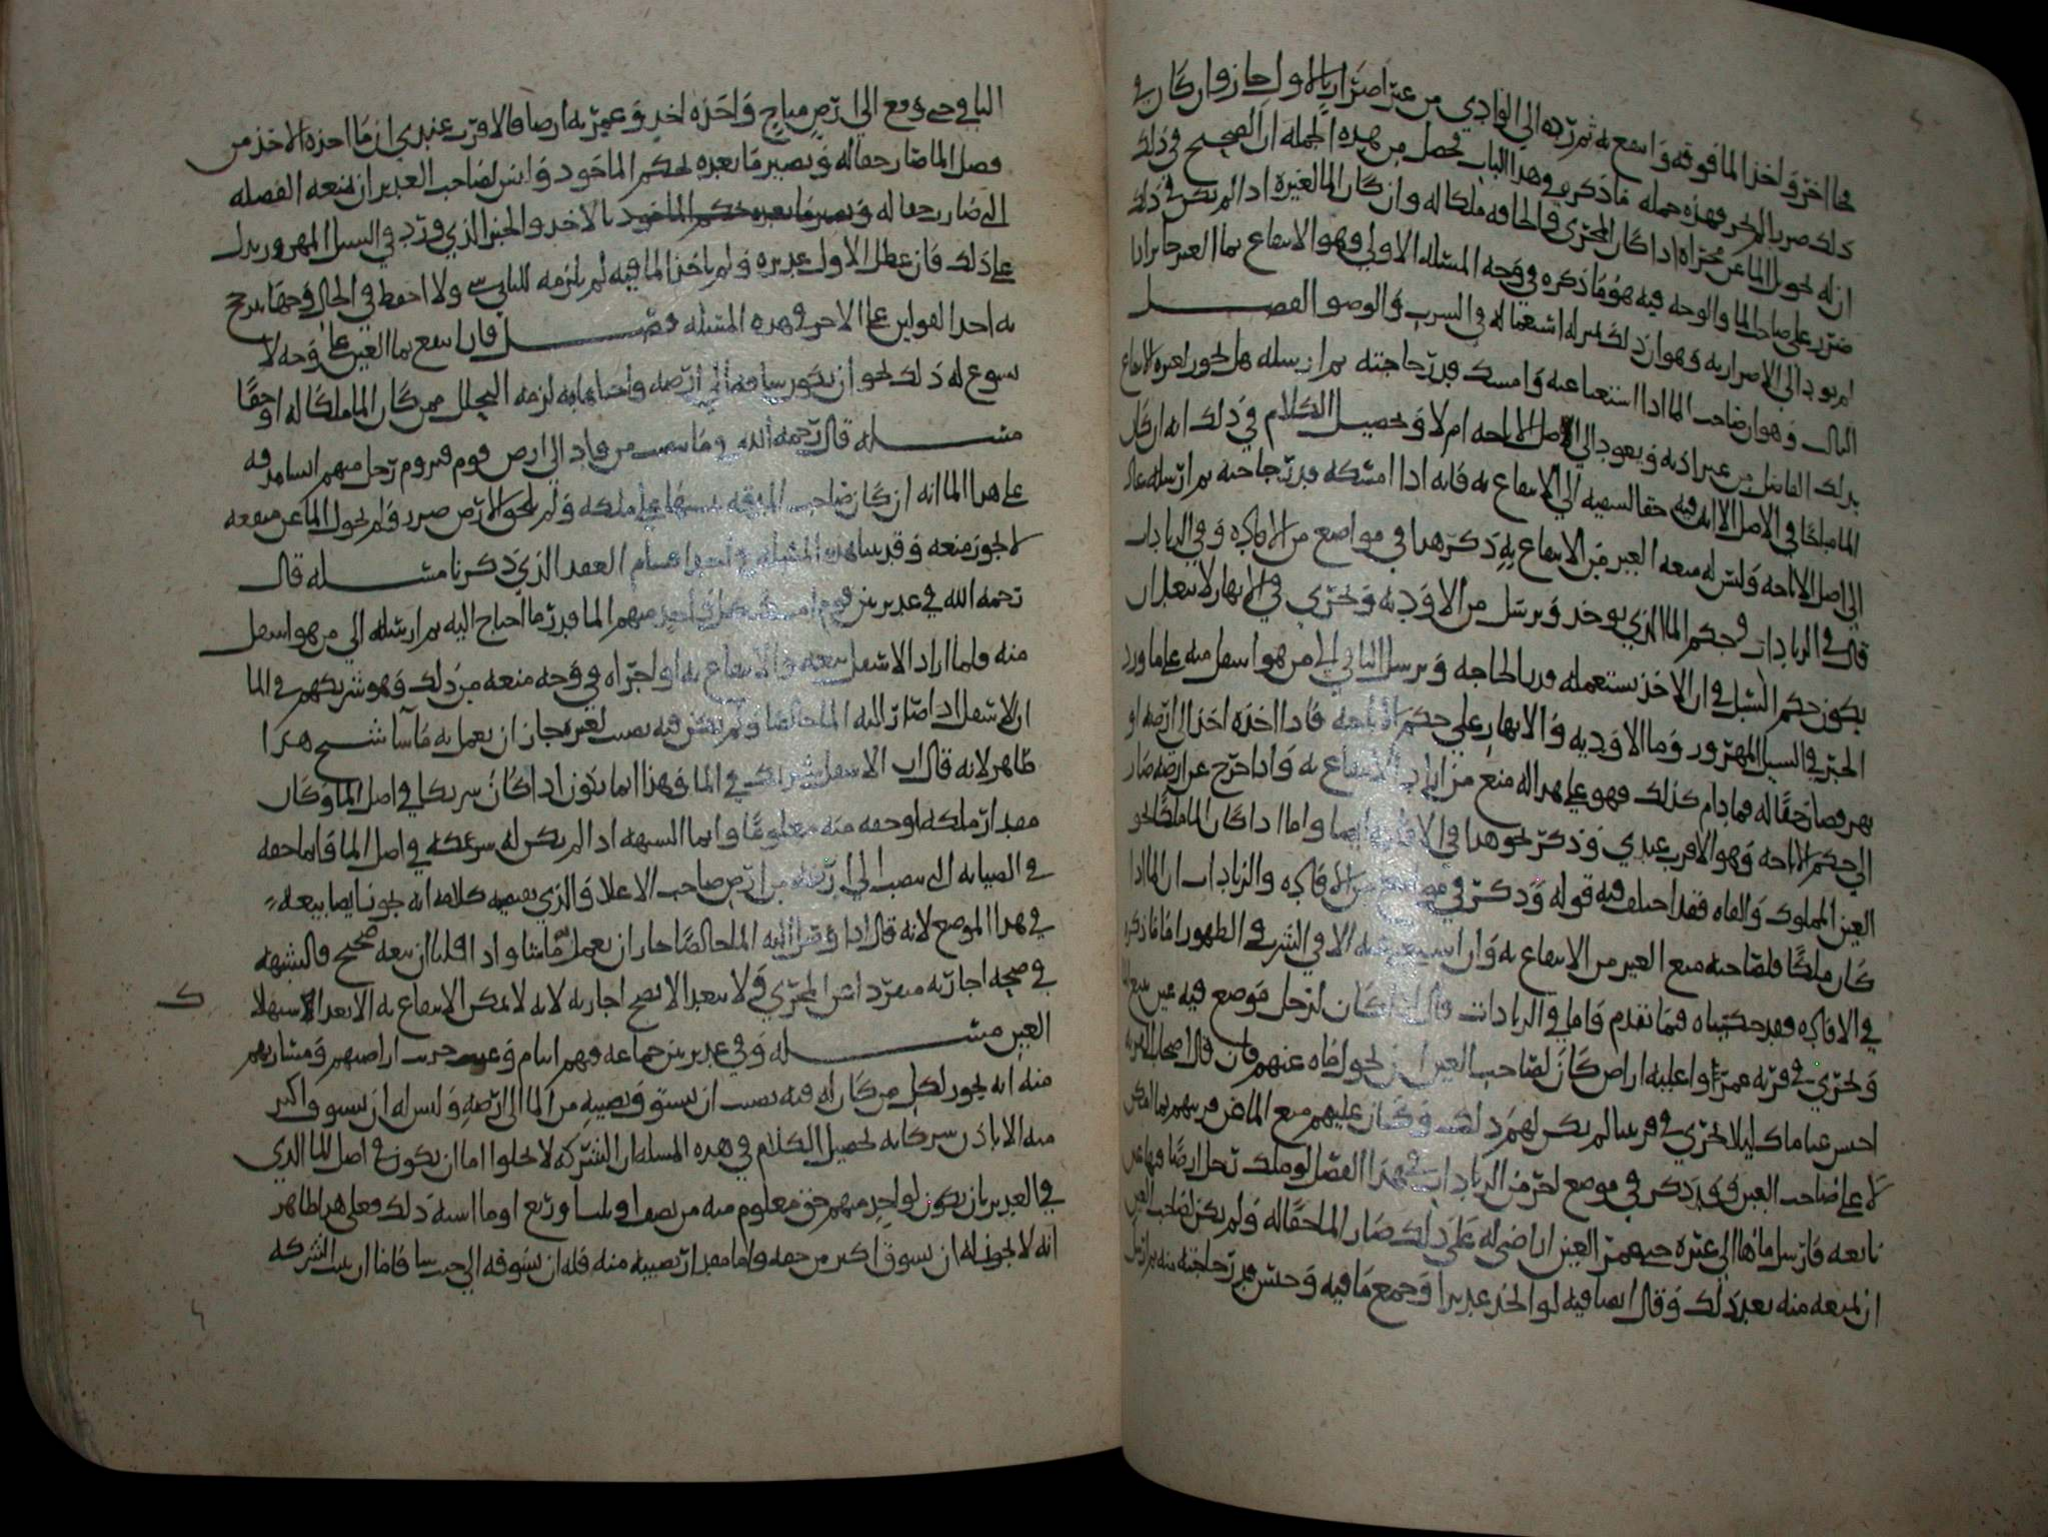 مجا اخر واخذ الما فوقه وانتفع به ثم رده الى الوادي من غير اضرار بالاول جاز وان كان في
ذلك ضرر بالم يجز فهذه جمله ما ذكره في هذا الباب تحصل من هذه الجمله ان الصحيح في ذلك
ان له تحويل الما عن مجراه اذا كان المجرى والحافه ملكا له وان كان الما لغيره اذا لم يكن في ذلك
ضرر على صاحب الما والوجه فيه هو ما ذكره في وجه المسله الاولى وهو الانتفاع بما الغير جايز اذا
لم يود الى الاضرار به وهو ان ذلك استعماله في الشرب والوضو الفصل
الثالث وهو ان صاحب الما اذا استغنا عنه وامسك قدر حاجته ثم ارسله هل يجوز لغيره الانتفاع
بذلك الفاضل من غير اذنه ويعود الى الاصل الاباحه ام لا وتحصيل الكلام في ذلك انه ان كان
الما مباحا في الاصل الا انه فيه حقا لسقيه الى الانتفاع به فانه اذا امسكه قدر حاجته ثم ارسله عاد
الى اصل الاباحه وليس له منعه الغير من الانتفاع به ذكر هذا في مواضع من الافاده وفي الزيادات
قال في الزيادات وحكم الما الذي يوخذ ويرسل من الاوديه ويجري في الانهار لا يبعد ان
يكون حكم السيل في ان الاخذ يستعمله قدر الحاجه ويرسل الباقي الى من هو اسفل منه على ما ورد
الخبر في السيل المهزور وما الاوديه والانهار على حكم الاباحه فاذا اخذه اخذ الى ارضه او
نهر فصار حقا له فما دام كذلك فهو على هذا له منع من اراد الانتفاع به واذا خرج عن ارضه صار
الى حكم الاباحه وهو الاقرب عندي وذكر نحو هذا في الافاده ايضا واما اذا كان الما ملكا نحو
العين المملوك والقناه فقد اختلف فيه قوله وذكر في مواضع من الافاده والزيادات ان الما اذا
كان ملكا فلصاحبه منع الغير من الانتفاع به وان استغنى عنه الا في الشرب في الطهور اما ما ذكره
في الافاده فقد حكيناه فيما تقدم واما في الزيادات قال اذا كان لرجل موضع فيه عين ينبع
وتجري في قريه عمرتها وعليه اراض كان لصاحب العين ان يحول ماه عنهم فان قال اصحاب القريه
احبس عنا ماك ليلا تجري في قريتنا لم يكن لهم ذلك وكان عليهم منع الما عن قريتهم بما امكن
لا على صاحب العين وقد ذكر في موضع اخر من الزيادات في هذا الفصل لو ملك رجل ارضا فيها عين
نابعه فارسل ماها الى غيره حتى عمر الغير اراضي له على ذلك صار الما حقا له ولم يكن لصاحب العين
ان يمنعه منه بعد ذلك وقال ايضا فيه لو اتخذ غديرا وجمع ما فيه وحبس قدر حاجته منه ثم ارسل
الباقي حتى وقع الى ارض مباح واخذه اخر وعمر به ارضا فالاقرب عندي ان ما اخذه الاخذ من
فضل الما صار حقا له ويصير ما بعده لحكم الماخوذ وليس لصاحب الغدير ان يمنعه الفضله
التي صارت حقا له ويصير ما بعده لحكم الماخوذ بالاخذ والخبر الذي ورد في السيل المهزور يدل
على ذلك فان عطل الاول غديره ولم ياخذ الما فيه لم يلزمه للثاني شي ولا احفظ في الحال وجها يرجح
به احد القولين على الاخر في هذه المسله فصل فان انتفع بما الغير على وجه لا
يسوغ له ذلك نحو ان يكون ساقه الى ارضه واحياها به لزمه التحلل ممن كان الما ملكا له او حقا
مسله قال رحمه الله وما سبب من واد الى ارض قوم فيروم رجل منهم
على هذا الما انه ان كان صاحب الفوقه على ملكه ولم يلحق الارض ضرر ولم يحول الما عن منفعه
لا يجوز منعه وقد بينا هذه المسله العقد الذي ذكرنا مسله قال
رحمه الله في غدير بين قوم امسك كل واحد منهم الما قدر ما احتاج اليه ثم ارسله الى من هو اسفل
منه فلما اراد الاسفل بيعه والانتفاع به او اجراه في وجه منعه من ذلك وهو شريكهم في الما
ان الاسفل اذا صار اليه الما خالصا ولم يبق فيه نصيب لغيره جاز ان يعمل به ما شا شرح هذا
ظاهر لانه قال ان الاسفل شريك في الما وهذا انما يكون اذا كان شريكا في اصل الما وكان
مقدار ملكه او حقه منه معلوما وانما الشبهه اذا لم يكن له شركه في اصل الما فانما حقه
في الصبابه التي تنصب الى ارضه من ارض صاحب الاعلا والذي يقتضيه كلامه انه يجوز ايضا بيعه
في هذا الموضع لانه قال اذا وصل اليه الما خالصا جاز ان يعمل ما شا واذا قلنا ان بيعه صحيح فالشبهه
في صحه اجارته منفردا عن المجرى ولا يبعد الا تصح اجارته لانه لا يمكن الانتفاع به الا بعد استهلاك
العين مسله وفي غدير بين جماعه فيهم ايتام وغيب خربت اراضيهم ومشاربهم
منه انه يجوز لكل من كان له فيه نصيب ان يسوق نصيبه من الما الى ارضه وليس له ان يسوق اكثر
منه الا باذن شركايه تحصيل الكلام في هذه المسله ان الشركه لا تخلوا اما ان يكون في اصل الما الذي
في الغدير بان يكون لواحد منهم حق معلوم منه من نصف او ثلث او ربع او ما اشبه ذلك فعلى هذا ظاهر
انه لا يجوز له ان يسوق اكثر من حقه واما مقدار نصيبه منه فله ان يسوقه الى حيث شا فاما ان يثبت الشركه